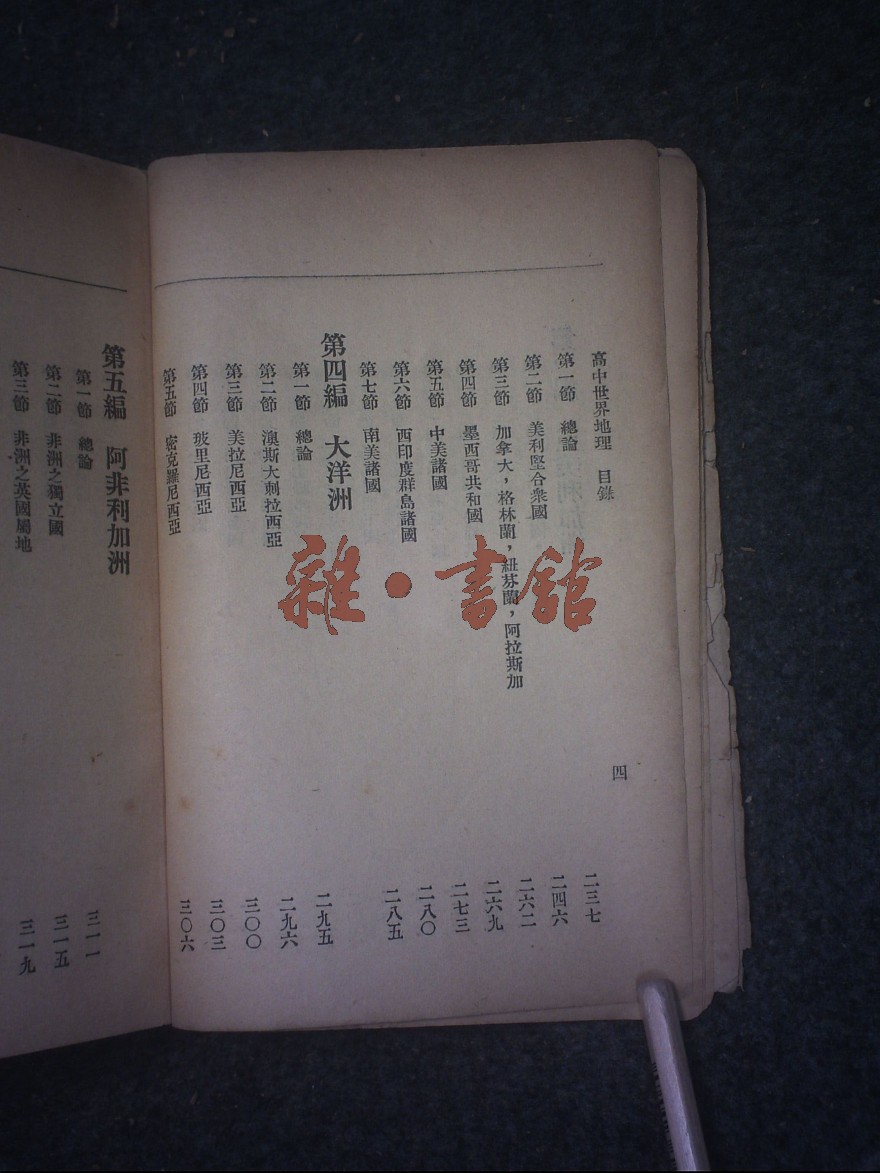 高中世界地理 目錄 四
第一節 總論 二三七
第二節 美利堅合衆國 二四六
第三節 加拿大，格林蘭，紐芬蘭，阿拉斯加 二六二
第四節 墨西哥共和國 二六九
第五節 中美諸國 二七三
第六節 西印度群島諸國 二八〇
第七節 南美諸國 二八五
第四編 大洋洲
第一節 總論 二九五
第二節 澳斯大剌拉西亞 二九六
第三節 美拉尼西亞 三〇〇
第四節 玻里尼西亞 三〇三
第五節 密克羅尼西亞 三〇六
第五編 阿非利加洲
第一節 總論 三一一
第二節 非洲之獨立國 三一五
第三節 非洲之英國屬地 三一九
雜·書館